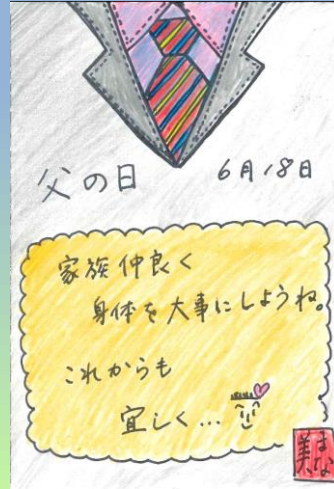 父の日 6月18日
家族仲良く
身体を大事にしようね。
これからも
宜しく...
まな
美